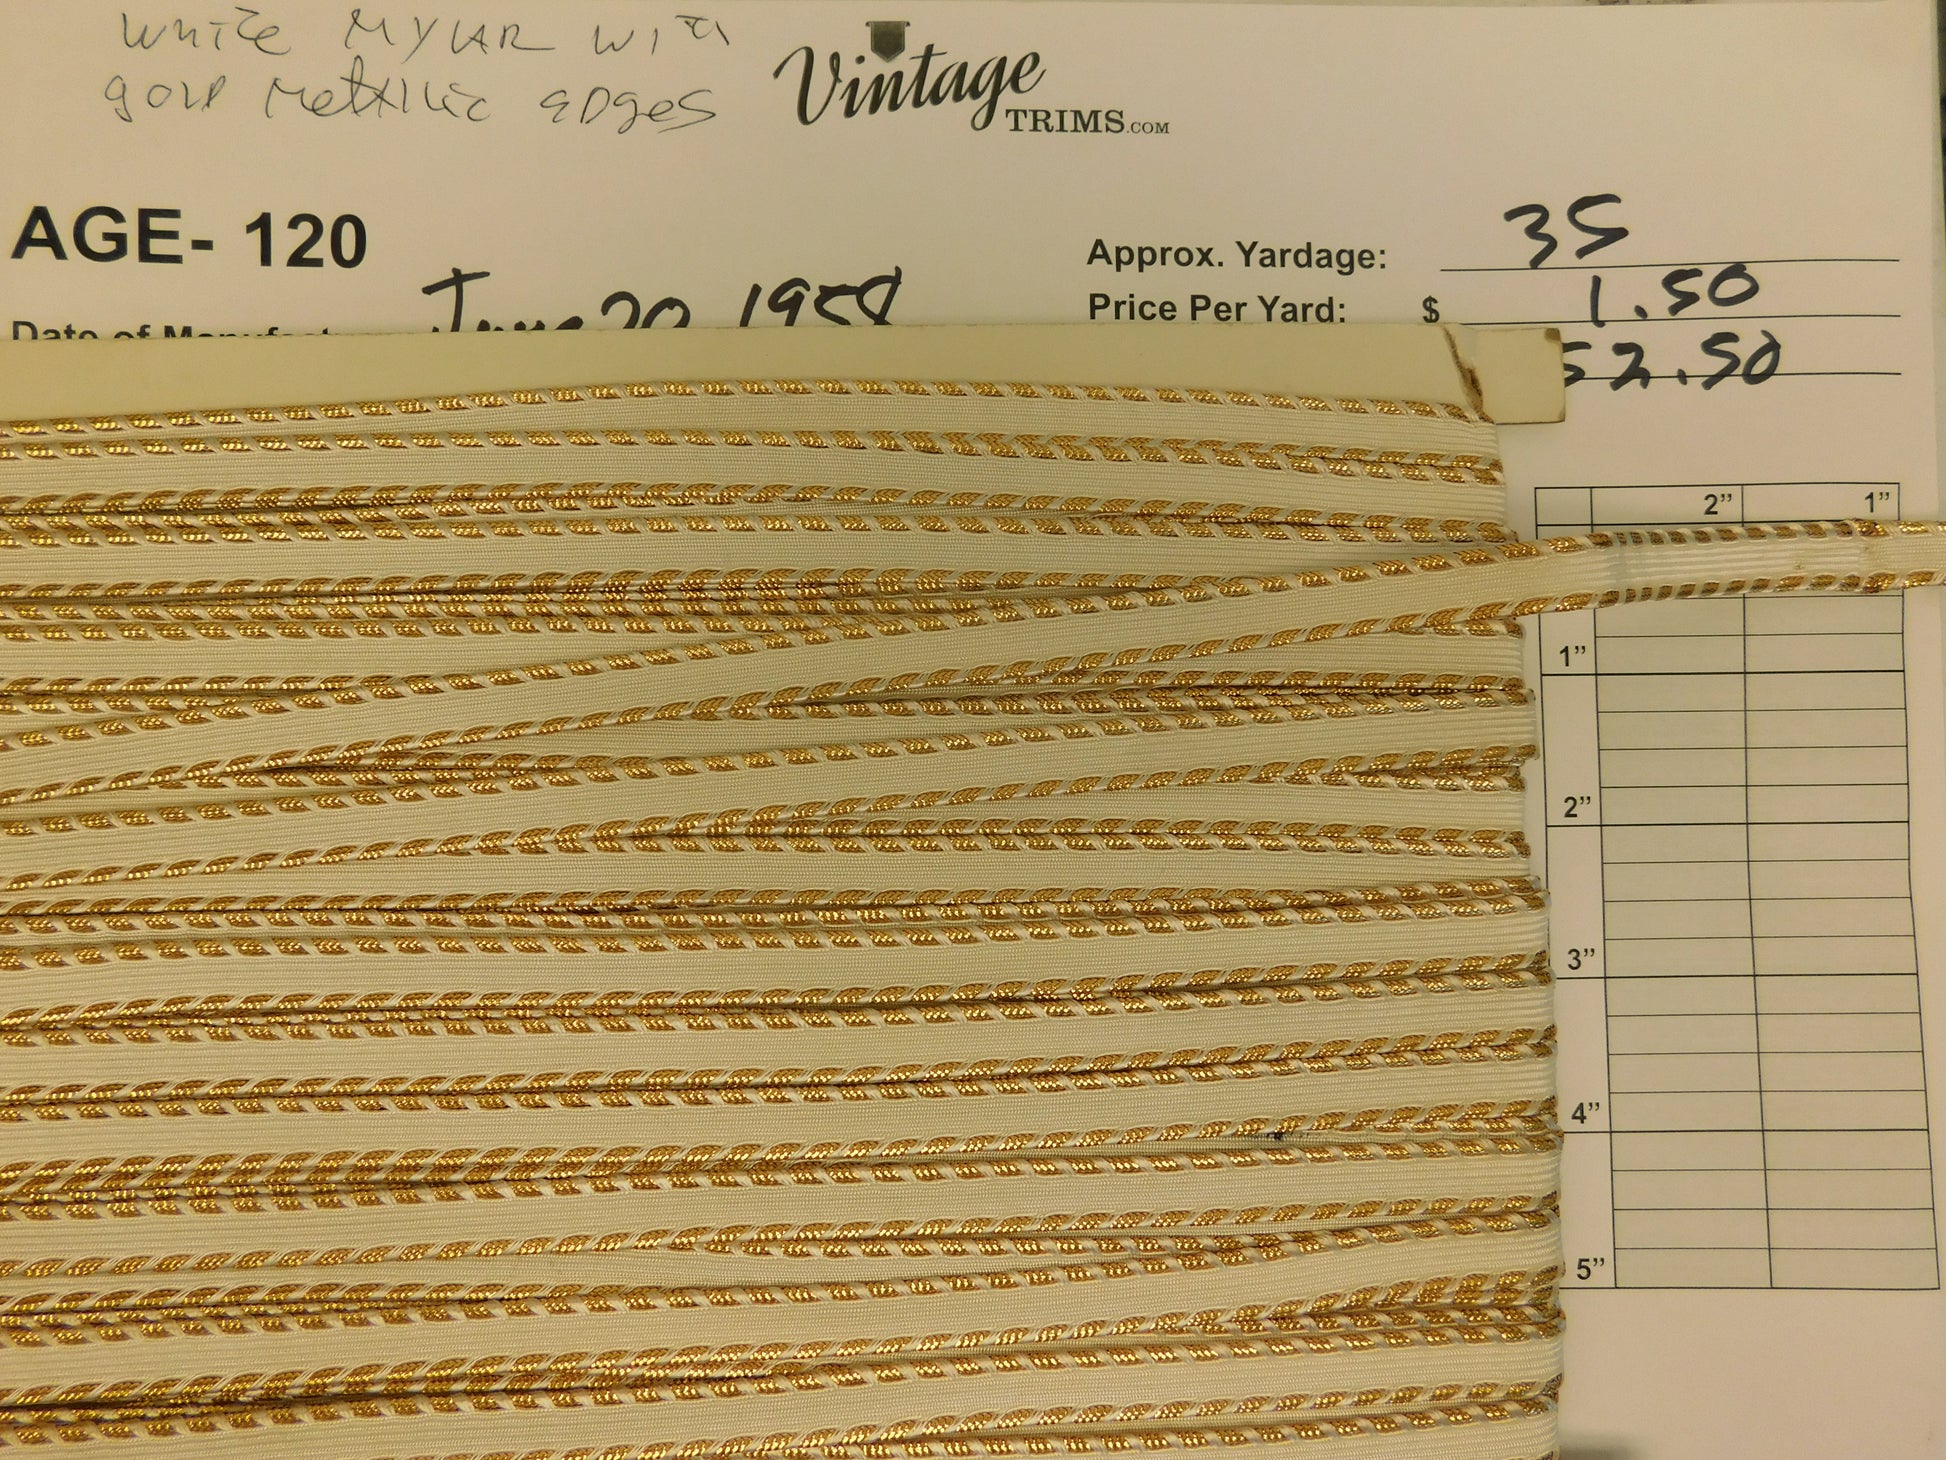 White MYLAR with
gold Metallic edges
Vintage
TRIMS.COM
AGE- 120
Approx. Yardage: 35
Date of Manufacture June 20 1958
Price Per Yard: $ 1.50
52.50
2” 1”
1”
2”
3”
4”
5”